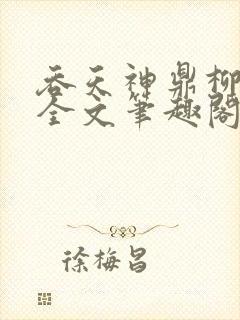 吞天神鼎柳
全文筆趣閣
徐梅昌